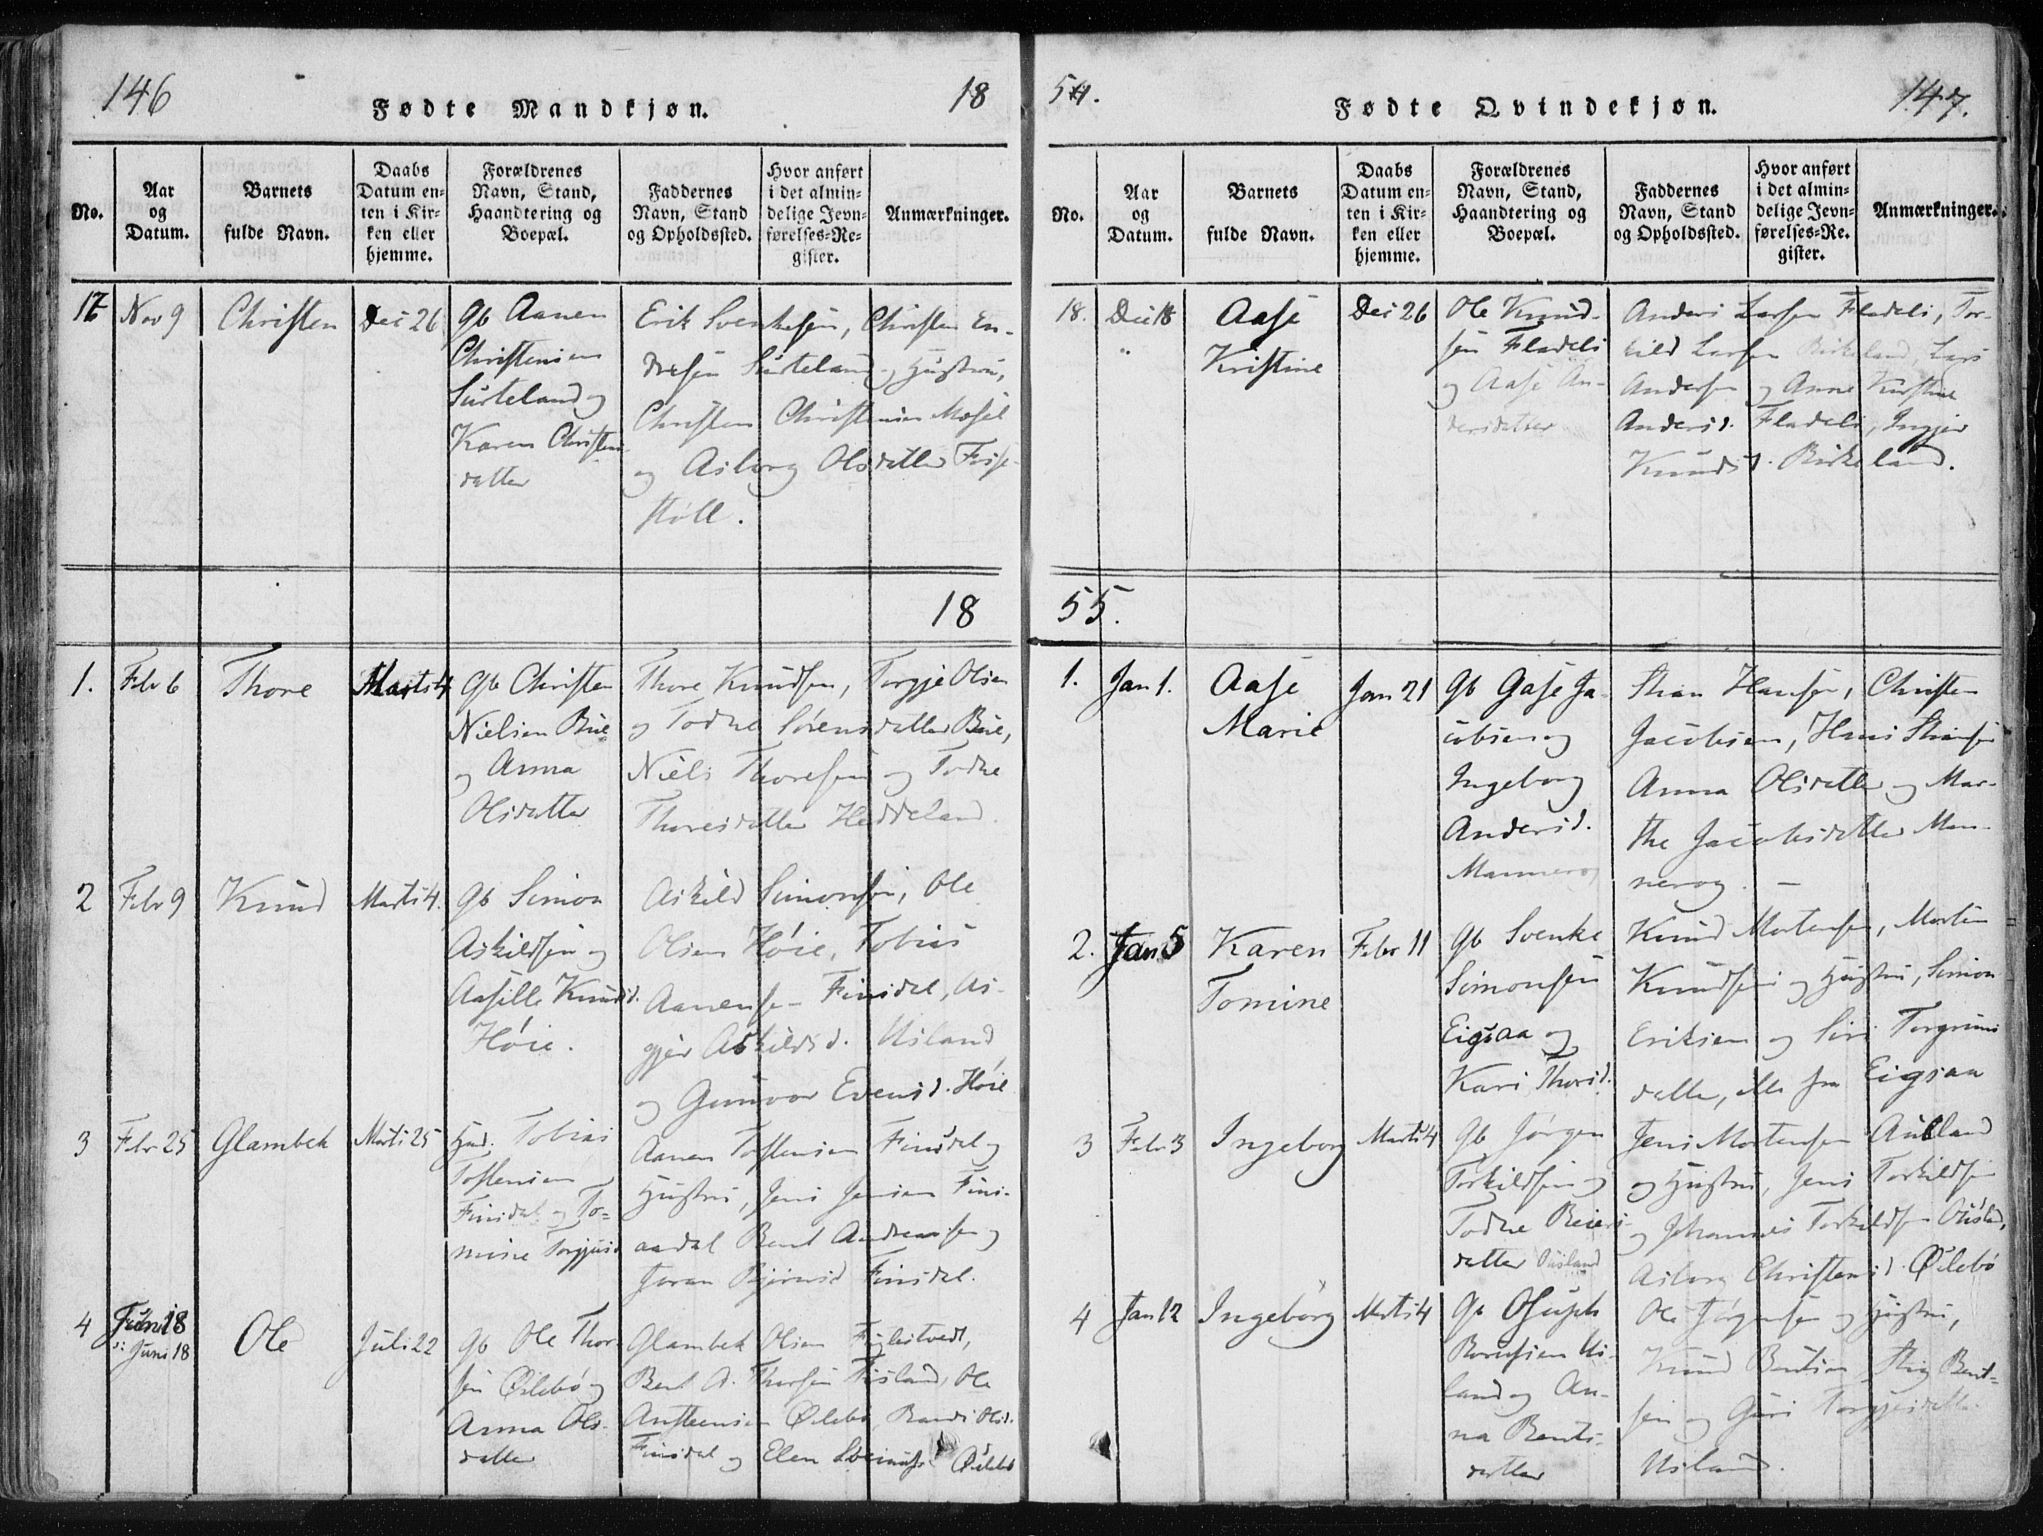 146
Fødte Mandkjøn.
18
No.
Aar
og
Datum.
Barnets
fulde Navn.
Daabs
Datum en-
ten i Kir-
ken eller
hjemme.
Forældrenes
Navn, Stand,
Haandtering og
Boepæl.
Faddernes
Navn, Stand
og Opholdssted.
Hvor anført
i det almin-
delige Jevn-
førelses-Re-
gister.
Anmærkninger.
17
Nov 9
Christen
Dec 26
Gb Aanen
Christensen
Surteland og
Karen Christens
datter
Erik Svenkesen, Christen En-
dresen Surteland og Hustru,
Christen Christensen Mæsel
og Asborg Olsdatter Fise-
støll.
18
1.
Febr 6
Thore
Marts 4
Gb Christen
Nielsen Bue
og Anna
Olsdatter
Thore Knudsen, Torgje Olsen
og Todne Sørensdatter Bue,
Niels Thoresen og Todne
Thoresdatter Heddeland.
2
Febr 9
Knud
Marts 4.
Gb Simon
Askildsen og
Aasille Knudsd.
Høie.
Askild Simonsen, Ole
Olsen Høie, Tobias
Aanense- Finsdal, As-
gjer Askildsd. Usland
og Gunvor Evensd. Høie
3
Febr 25
Glambek
Marts 25
Hmd. Tobias
Toftensen
Finsdal og To-
mine Torgjusd
Aanen Toftensen Finsdal og
Hustru, Jens Jensen Fins-
aadal Bent Andreassen og
Joran Bjørnsd Finsdal.
4
Juni 18
: Juni 18
Ole
Juli 22
Gb Ole Thor
sen Øilebø og
Anna Ols-
datter
Glambek Olsen Fuglestvedt,
Bent A. Thorsen Tisland, Ole
Anstensen Øilebø, Randi Olsd.
Finsdal og Elen Øilebø
54.
Fødte Qvindekjøn.
147.
No.
Aar
og
Datum.
Barnets
fulde Navn.
Daabs
Datum en-
ten i Kir-
ken eller
hjemme.
Forældrenes
Navn, Stand,
Haandtering og
Boepæl.
Faddernes
Navn, Stand
og Opholdssted.
Hvor anført
i det almin-
delige Jevn-
førelses-Re-
gister.
Anmærkninger.
18.
Dec 18
Aase
Kristine
Dec 26
Ole Knud-
sen Fladeli
og Aase An-
dersdatter
Anders Larsen Fladeli, Tor-
kild Larsen Birkeland, Lars
Andersen og Anne Kirstine
Andersd. Fladeli, Ingjer
Knudsd. Birkeland.
55.
1.
Jan 1.
Aase
Marie
Jan 21
Gb Gase Ja-
cobsen og
Ingeborg
Andersd.
Mannerog
Stian Hansen, Christen
Jacobsen, Hans Stiansen
Anna Olsdatter og Mar-
the Jacobsdatter Man-
nerog. —
2.
Jan 5
Karen
Tomine
Febr 11
Gb Svenke
Simonsen
Eigsaa og
Kari Thorsd.
Knud Mortensen, Morten
Knudsen og Hustru, Simon
Eriksen og Siri Torgrims
datter, alle fra Eigsaa
3
Febr 3
Ingeborg
Marts 4
Gb Jørgen
Torkildsen og
Todne Reiers-
datter Ousland
Jens Mortensen Aubland
og Hustru, Jens Torkildsen
og Johannes Torkildsen Ousland,
Asborg Christensd. Øilebø
4
Jan 12
Ingeborg
Marts 4
Gb Osuph
Bentsen Us-
land og An-
na Bents-
datter
Ole Jørgensen og Hustru,
Knud Bentsen, Stig Bent-
sen og Guri Torgjesdatter
Usland.